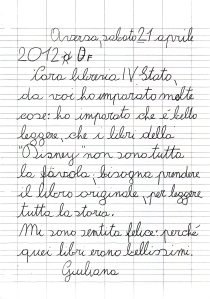 Aversa, sabato 21 aprile
2012
Cara libreria IV Stato,
da voi ho imparato molte
cose: ho imparato che è bello
leggere, che i libri della
"Disney" non sono tutta
la favola, bisogna prendere
il libro originale, per leggere
tutta la storia.
Mi sono sentita felice: perché
quei libri erano bellissimi.
Giuliana